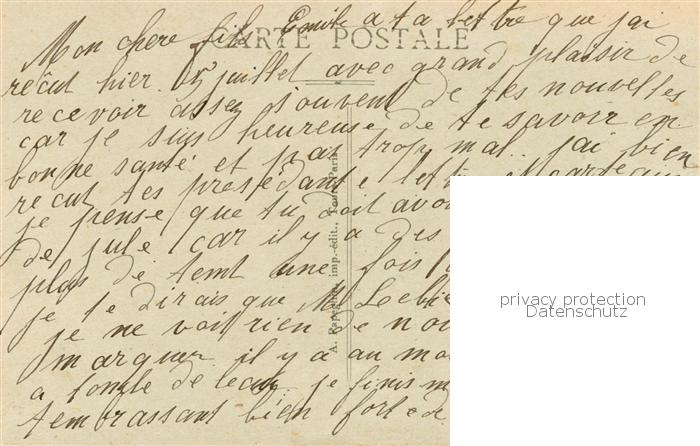 Mon chere fils Emile a ta lettre que jai
CARTE POSTALE
recut hier 15 juillet avec grand plaisir de
recevoir assez souvent de tes nouvelles
car je suis heureuse de te savoir en
bonne santé et pas trop mal. jai bien
recut tes presedante
je pense que tu doit avoi
de jule car il y a des
plus de temt une fois
je te dirais que Mr Lebie
je ne voit rien de nou
marquer il y a au mo
a tonfle de leau je finis m
tembrassant bien fort
A. Rapeaud, imp.-édit., Tours
privacy protection
Datenschutz